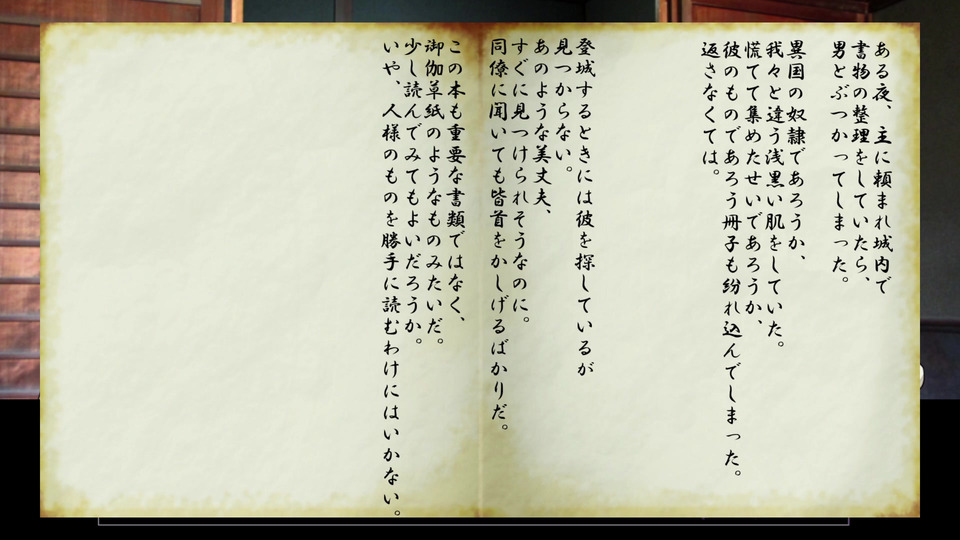 ある夜、主に頼まれ城内で
書物の整理をしていたら、
男とぶつかってしまった。
異国の奴隷であろうか、
我々と違う浅黒い肌をしていた。
慌てて集めたせいであろうか、
彼のものであろう冊子も紛れ込んでしまった。
返さなくては。
登城するときには彼を探しているが
見つからない。
あのような美丈夫、
すぐに見つけられそうなのに。
同僚に聞いても皆首をかしげるばかりだ。
この本も重要な書類ではなく、
御伽草紙のようなものみたいだ。
少し読んでみてもよいだろうか。
いや、人様のものを勝手に読むわけにはいかない。